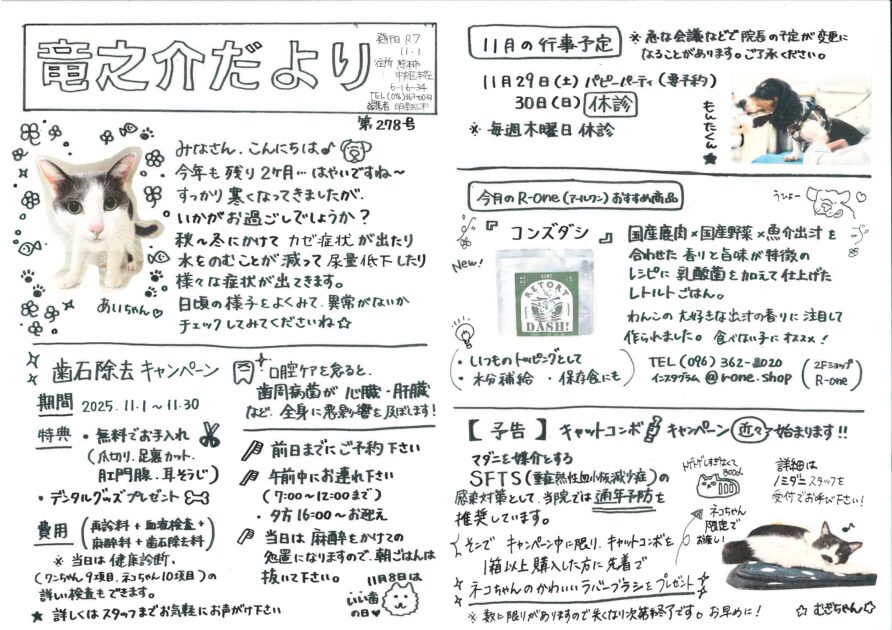 竜之介だより
発行日 R7
11.1
住所 熊本市
中央区本荘
6-16-34
TEL(096)363-0033
第278号
みなさん、こんにちは♪
今年も残り2ヶ月…はやいですね〜
すっかり寒くなってきましたが、
いかがお過ごしでしょうか？
秋〜冬にかけてカゼ症状が出たり
水をのむことが減って尿量低下したり
様々な症状が出てきます。
日頃の様子をよくみて、異常がないか
チェックしてみてくださいね☆
あいちゃん♡
歯石除去キャンペーン
口腔ケアを怠ると、
歯周病菌が心臓・肝臓
など、全身に悪影響を及ぼします！
期間 2025.11.1〜11.30
特典 ・無料でお手入れ
(爪切り、足裏カット、
肛門腺、耳そうじ)
・デンタルグッズプレゼント
費用 (再診料+血液検査+
麻酔料+歯石除去料)
※当日は健康診断、
(ワンちゃん9項目、ネコちゃん10項目)の
詳しい検査もできます。
★詳しくはスタッフまでお気軽にお声がけ下さい
前日までにご予約下さい
午前中にお連れ下さい
(7:00〜12:00まで)
・夕方16:00〜お迎え
当日は麻酔をかけての
処置になりますので、朝ごはんは
抜いて下さい。
11月8日は
いい歯
の日♥
11月の行事予定
※急な会議などで院長の予定が変更に
なることがあります。ご了承ください。
11月29日(土) パピーパーティ(要予約)
30日(日) 休診
※毎週木曜日休診
もんたくん★
今月のR-one(アールワン)おすすめ商品
うひょー
『コンズダシ』
New!
RETORT
DASH!
国産鹿肉×国産野菜×魚介出汁を
合わせた香りと旨味が特徴の
レシピに乳酸菌を加えて仕上げた
レトルトごはん。
わんこの大好きな出汁の香りに注目して
作られました。食べない子にオススメ！
・いつものトッピングとして
・水分補給 ・保存食にも
TEL(096)362-8020
インスタグラム @r-one.shop
(2Fショップ
R-one)
【予告】キャットコンボキャンペーン近々始まります!!
マダニを媒介とする
SFTS(重症熱性血小板減少症)の
感染対策として、当院では通年予防を
推奨しています。
そこでキャンペーン中に限り、キャットコンボを
1箱以上購入した方に先着で
ネコちゃんのかわいいラバーブラシをプレゼント
※数に限りがありますので失くなり次第終了です。お早めに！
トゲトゲしすぎなくて
good
ネコちゃん
限定で
お渡し！
詳細は
スタッフを
受付でお呼び下さい！
☆むぎちゃん☆